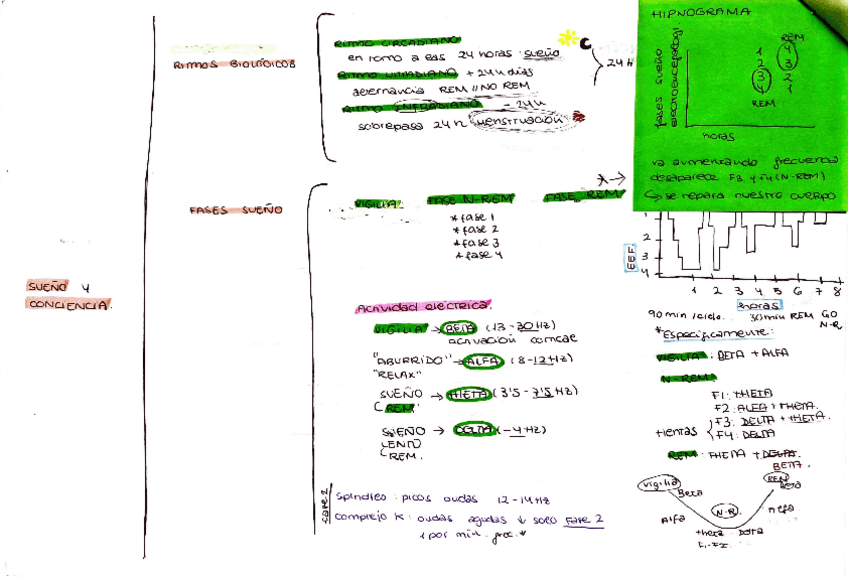 SUEÑO Y
CONCIENCIA.
RITMOS BIOLÓGICOS
RITMO CIRCADIANO
en torno a las 24 horas: sueño
RITMO ULTRADIANO + 24h días
alternancia REM // NO REM
RITMO INFRADIANO - 24h
sobrepasa 24h (menstruación)
24H
FASES SUEÑO
VIGILIA
FASE N-REM
FASE REM
* fase 1
* fase 2
* fase 3
* fase 4
Actividad eléctrica.
VIGILIA → BETA (13-30Hz)
activación
"ABURRIDO" → ALFA (8-12Hz)
"RELAX"
SUEÑO → THETA (3'5 - 7'5Hz)
REM
SUEÑO → DELTA (-4Hz)
LENTO
REM.
FASE 2
Spindles: picos ondas 12-14Hz
complejo K: ondas agudas ↓ solo Fase 2
1 por min.
HIPNOGRAMA
fases sueño
horas
1
2
3
4
REM
REM
4
3
2
1
va aumentando frecuencia
desaparece F3 y F4 (N-REM)
↳ se repara nuestro cuerpo
EEF.
1
2
3
4
1 2 3 4 5 6 7 8
horas
90 min /ciclo. 30min REM 60
N-R
*Específicamente:
VIGILIA: BETA + ALFA
N-REM:
F1: THETA
F2: ALFA + THETA.
F3: DELTA + THETA.
F4: DELTA
lentas
REM: THETA + DELTA.
BETA.
vigilia
Beta
Alfa
N-R
theta Delta
F1-F2
REM
Beta